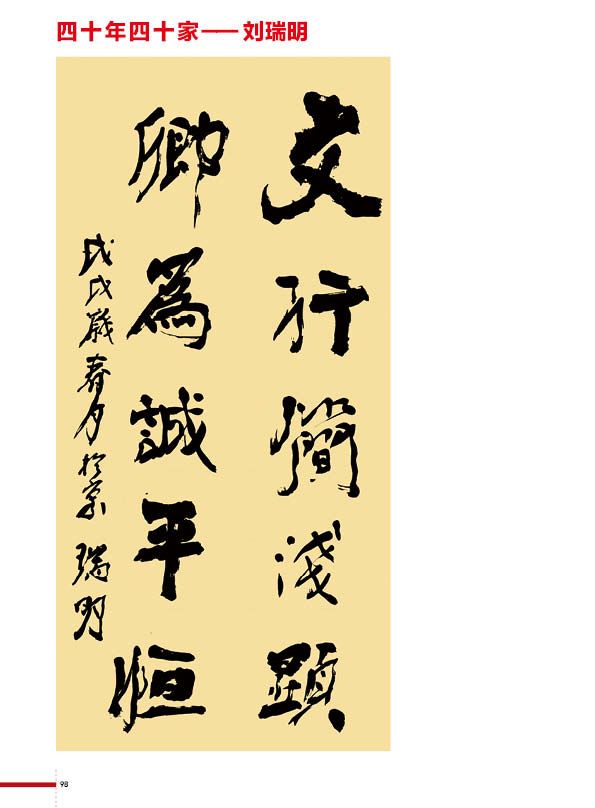 四十年四十家——刘瑞明
文行簡淺顕
卿為誠平恒
戊戌歲春月於京 瑞明
98